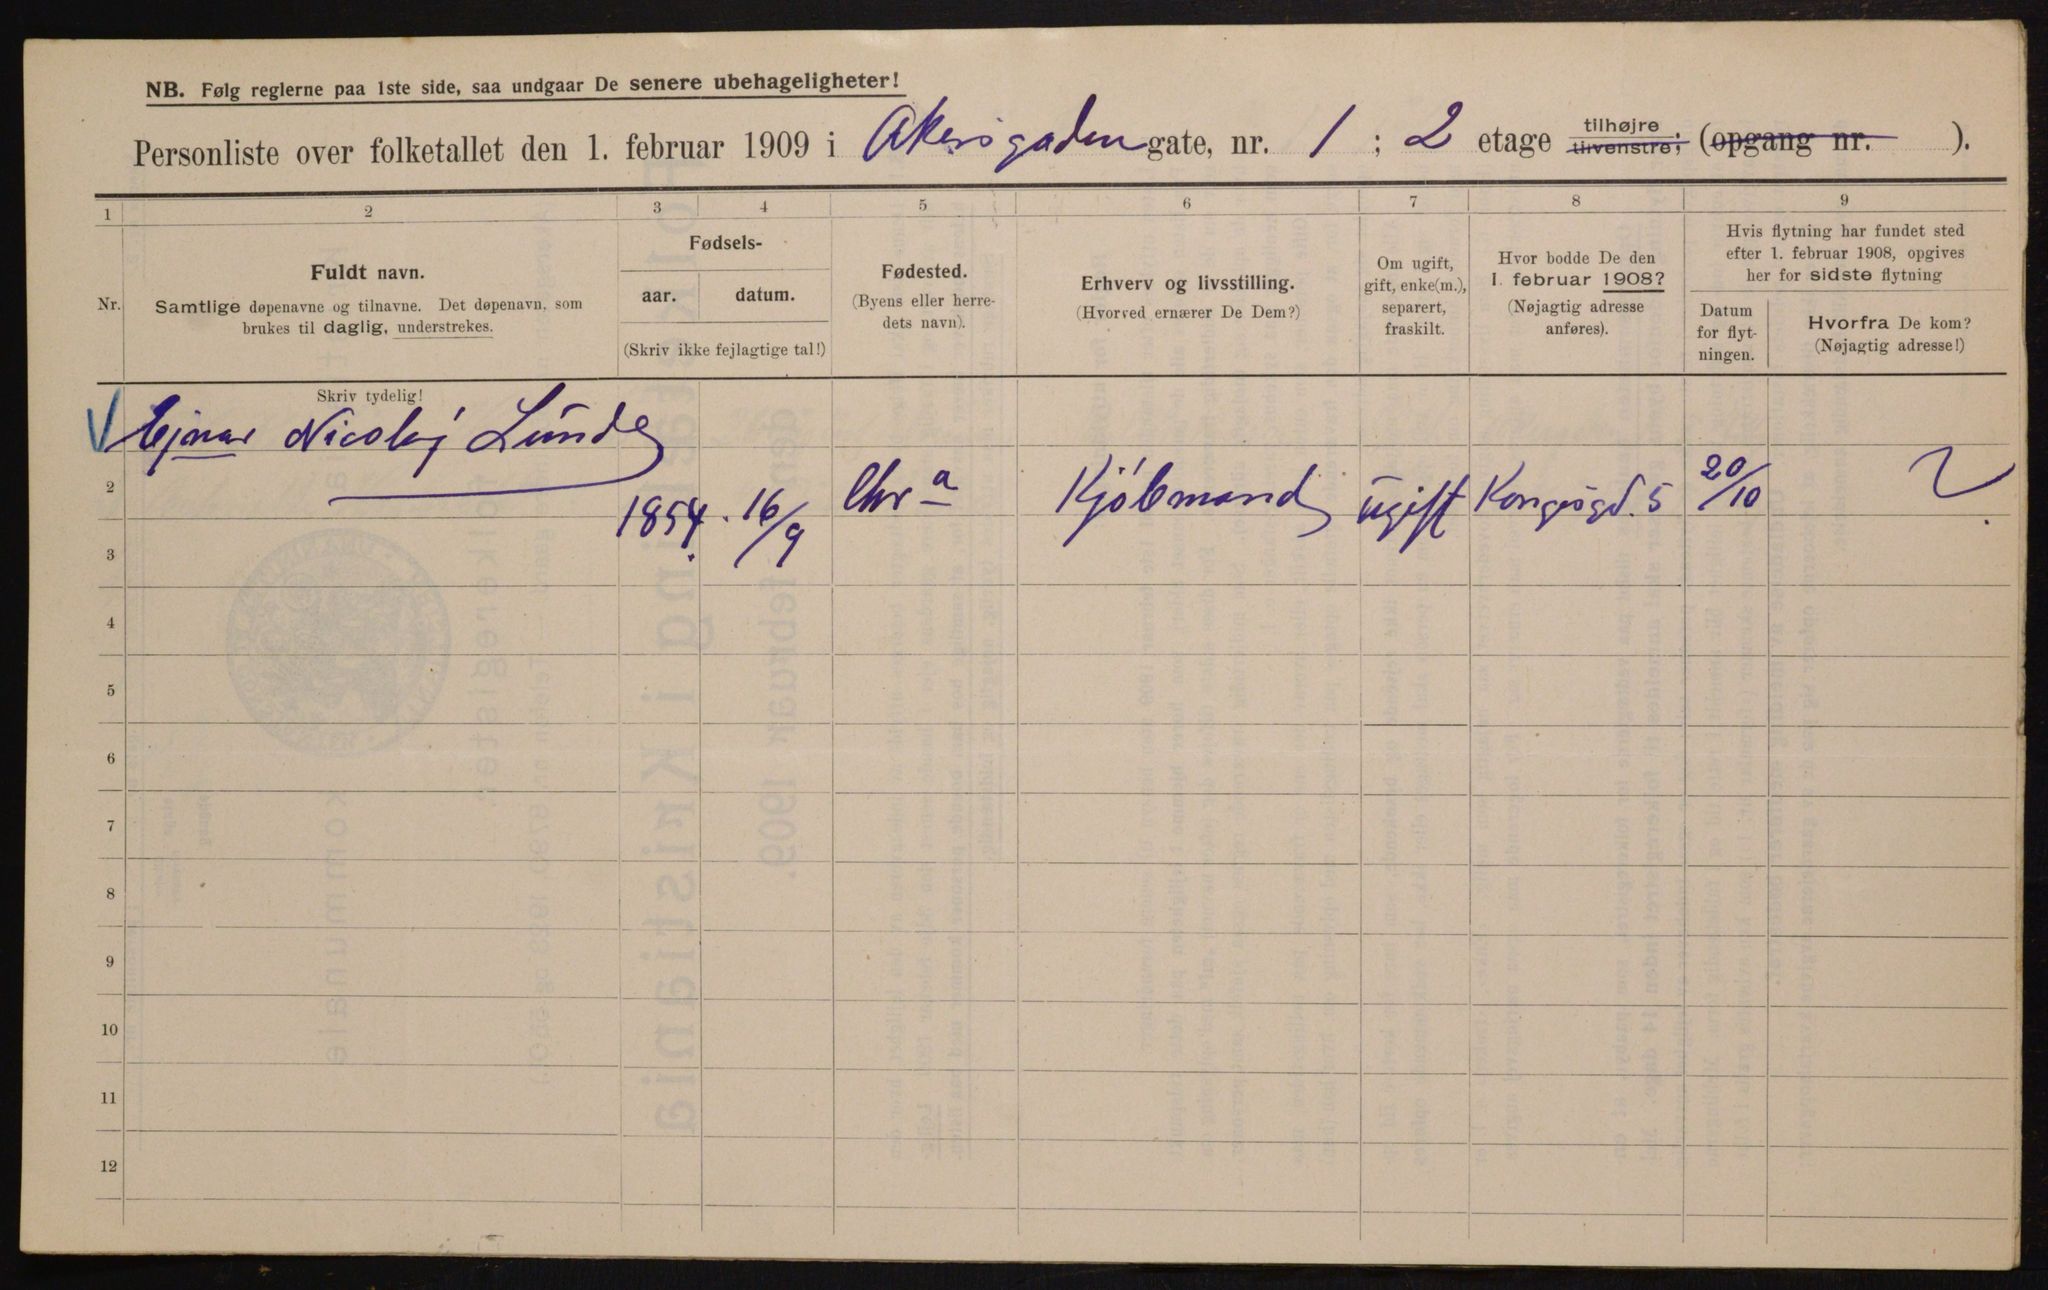 NB. Følg reglerne paa 1ste side, saa undgaar De senere ubehageligheter!
Personliste over folketallet den 1. februar 1909 i Akersgaden gate, nr. 1 ; 2 etage tilhøjre tilvenstre; (opgang nr. ).
1 2 3 4 5 6 7 8 9
Nr.
Fuldt navn.
Samtlige døpenavne og tilnavne. Det døpenavn, som
brukes til daglig, understrekes.
Fødsels-
aar. datum.
(Skriv ikke fejlagtige tal!)
Fødested.
(Byens eller herre-
dets navn).
Erhverv og livsstilling.
(Hvorved ernærer De Dem?)
Om ugift,
gift, enke(m.),
separert,
fraskilt.
Hvor bodde De den
1. februar 1908?
(Nøjagtig adresse
anføres).
Hvis flytning har fundet sted
efter 1. februar 1908, opgives
her for sidste flytning
Datum
for flyt-
ningen.
Hvorfra De kom?
(Nøjagtig adresse!)
Skriv tydelig!
Ejnar Nicolaj Lunde
2 1854. 16/9 Chr a Kjøbmand ugift Kongsgd. 5 20/10
3
4
5
6
7
8
9
10
11
12